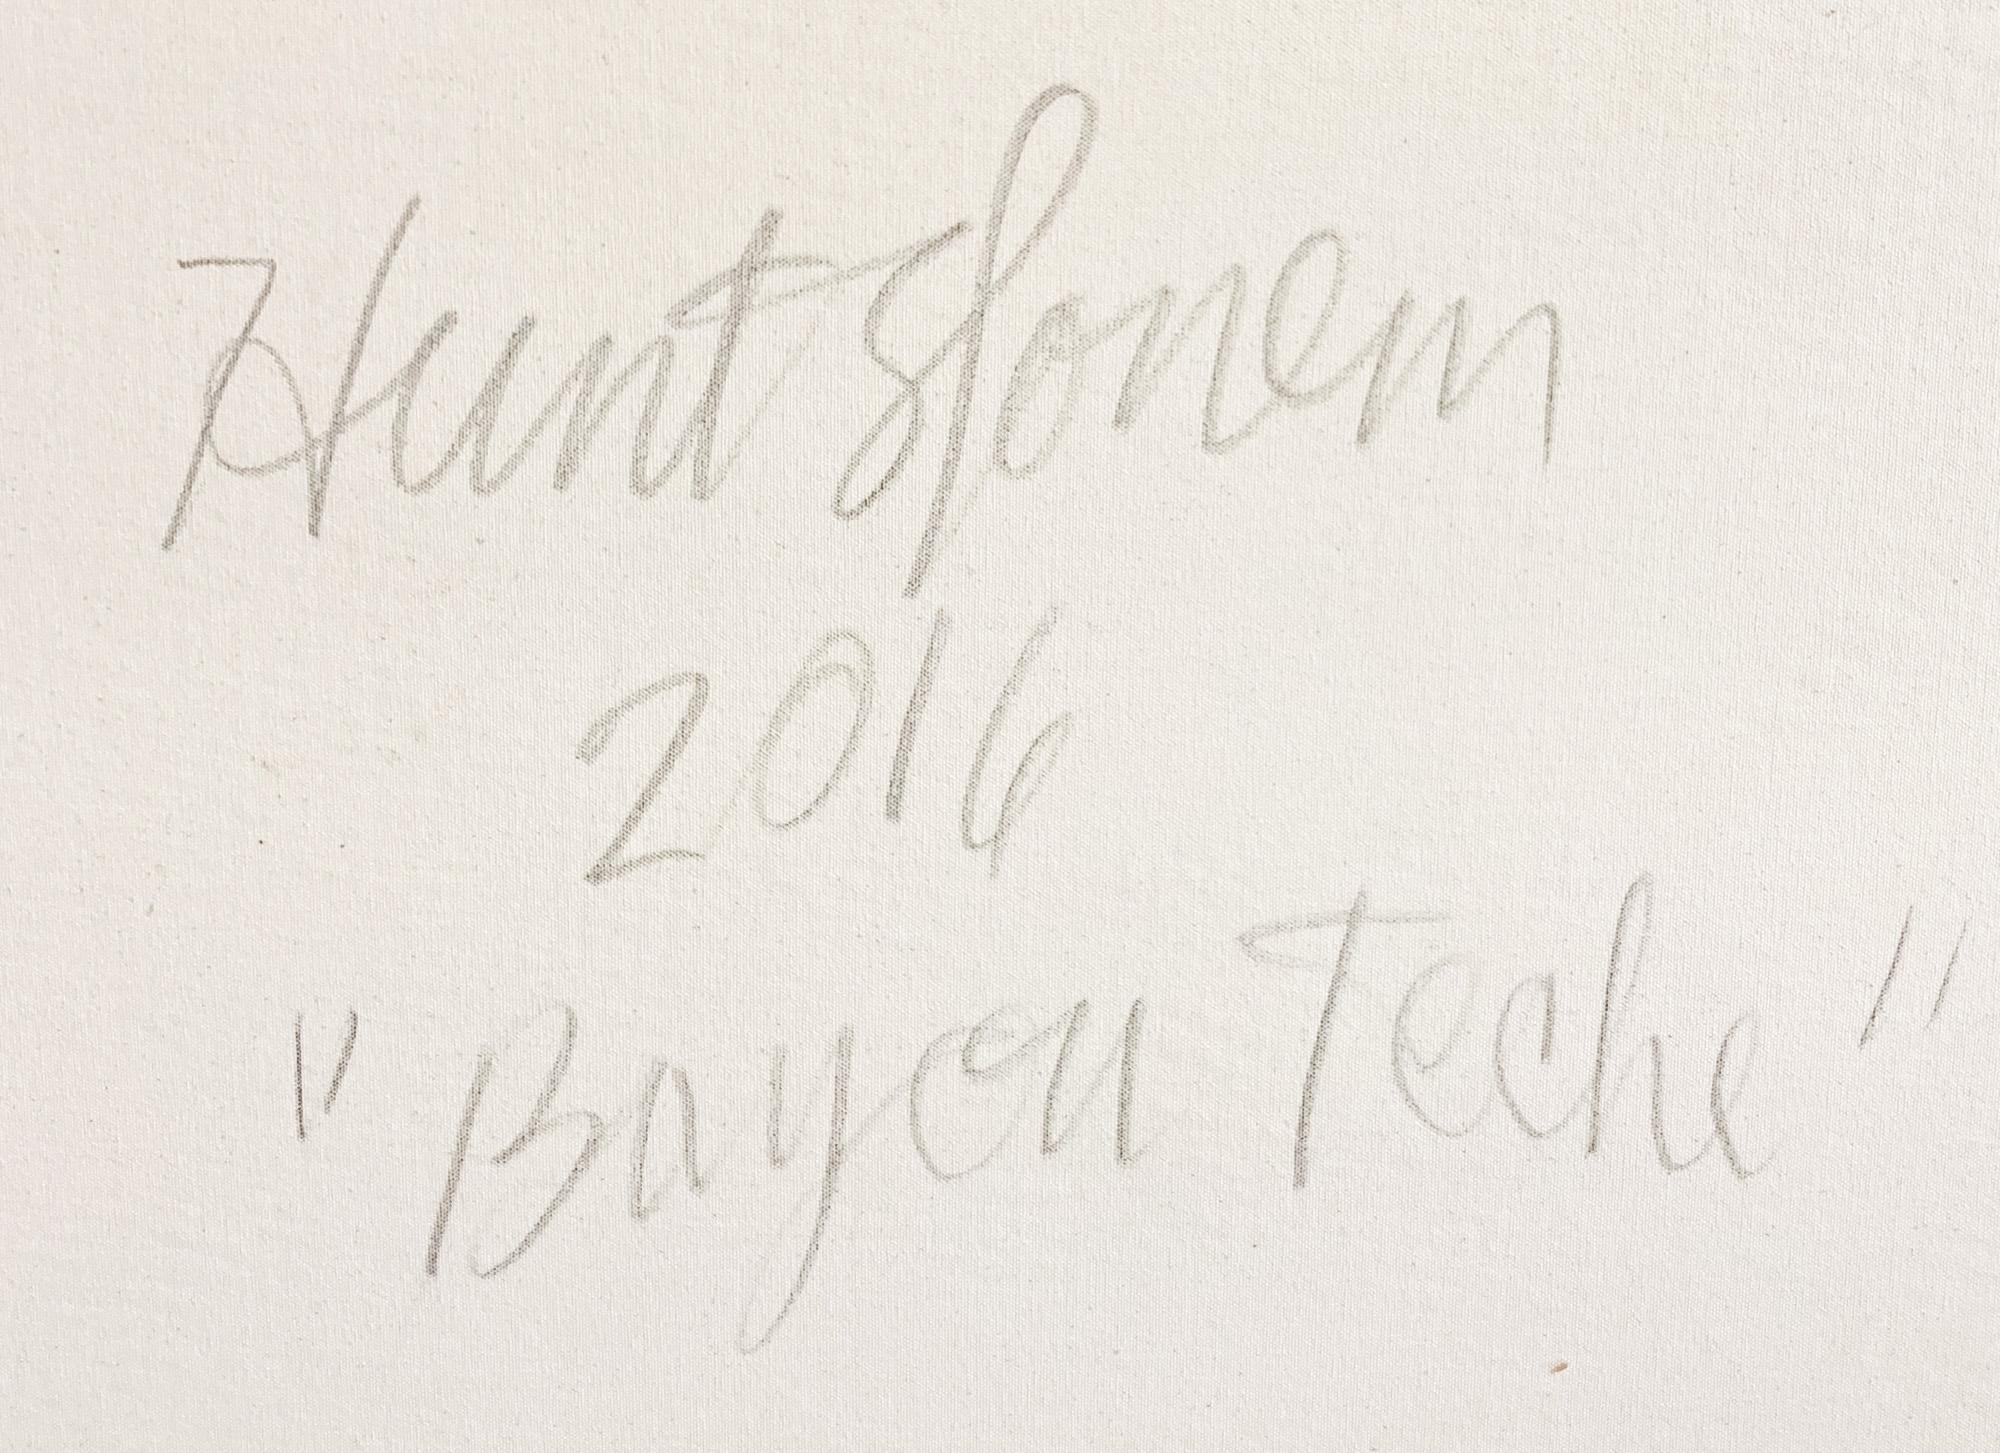 Hunt Slonem
2016
"Bayou Teche"